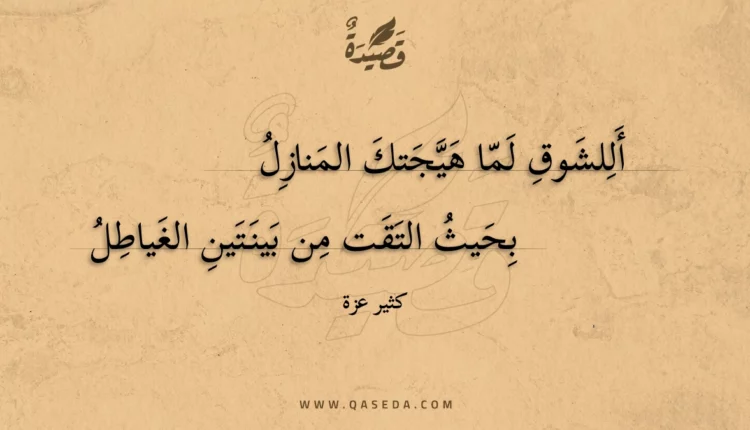 قَصِيْدَةٌ
أَلِلشَوقِ لَمّا هَيَّجَتكَ المَنازِلُ
بِحَيثُ التَقَت مِن بَينَتَينِ الغَياطِلُ
كثير عزة
WWW.QASEDA.COM